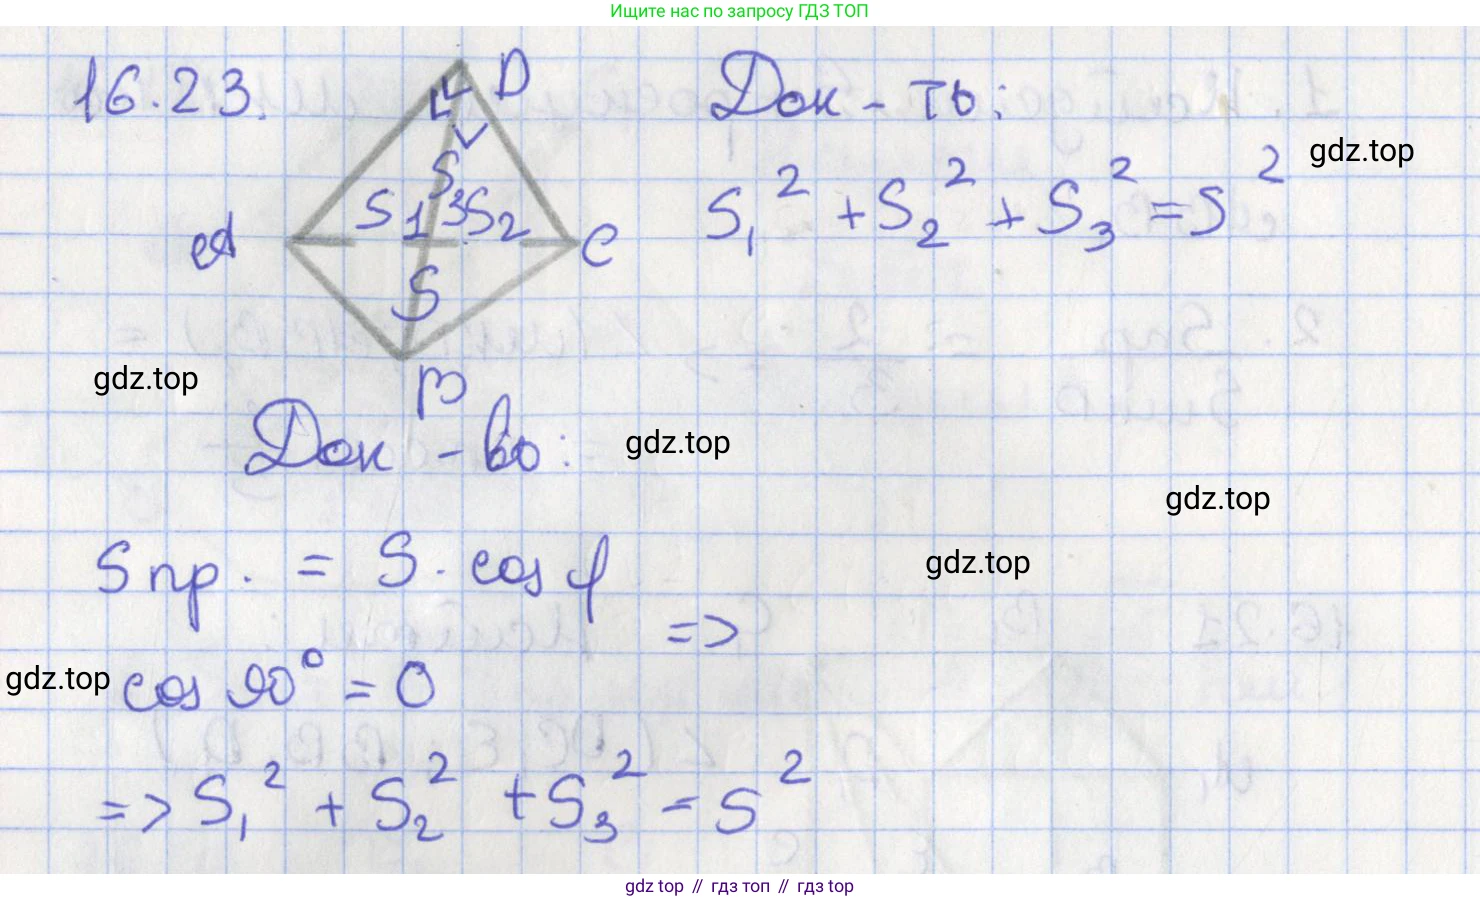 Ищите нас по запросу ГДЗ ТОП
16.23.
D
Док-ть:
gdz.top
S₁² + S₂² + S₃² = S²
S₃
S₁
S₂
A
C
S
B
gdz.top
Док-во:
gdz.top
gdz.top
Sпр. = S · cos φ
gdz.top
=>
gdz.top
cos 90° = 0
=> S₁² + S₂² + S₃² = S²
gdz.top // гдз топ // гдз top